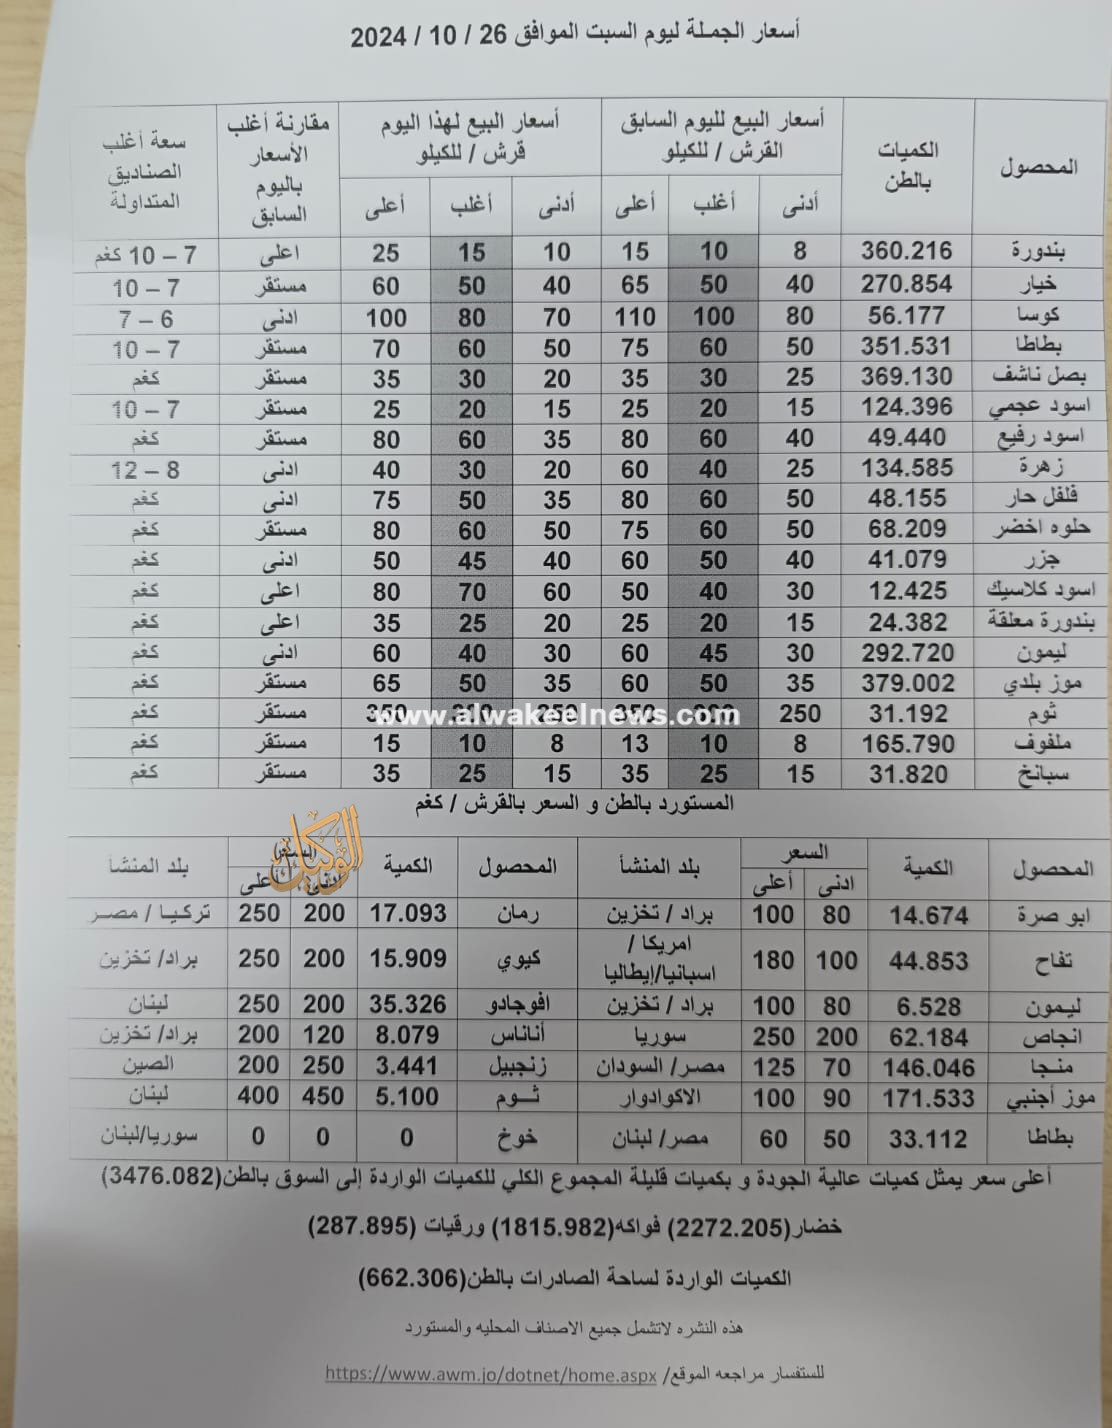 أسعار الجملة ليوم السبت الموافق 26 / 10 / 2024
المحصول الكميات بالطن أسعار البيع لليوم السابق القرش / للكيلو أسعار البيع لهذا اليوم قرش / للكيلو مقارنة أغلب الأسعار باليوم السابق سعة أغلب الصناديق المتداولة
أدنى أغلب أعلى أدنى أغلب أعلى
بندورة 360.216 8 10 15 10 15 25 اعلى 7 – 10 كغم
خيار 270.854 40 50 65 40 50 60 مستقر 7 – 10
كوسا 56.177 80 100 110 70 80 100 ادنى 6 – 7
بطاطا 351.531 50 60 75 50 60 70 مستقر 7 – 10
بصل ناشف 369.130 25 30 35 20 30 35 مستقر كغم
اسود عجمي 124.396 15 20 25 15 20 25 مستقر 7 – 10
اسود رفيع 49.440 40 60 80 35 60 80 مستقر كغم
زهرة 134.585 25 40 60 20 30 40 ادنى 8 – 12
فلفل حار 48.155 50 60 80 35 50 75 ادنى كغم
حلوه اخضر 68.209 50 60 75 50 60 80 مستقر كغم
جزر 41.079 40 50 60 40 45 50 ادنى كغم
اسود كلاسيك 12.425 30 40 50 60 70 80 اعلى كغم
بندورة معلقة 24.382 15 20 25 20 25 35 اعلى كغم
ليمون 292.720 30 45 60 30 40 60 ادنى كغم
موز بلدي 379.002 35 50 60 35 50 65 مستقر كغم
ثوم 31.192 250 350 250 350 مستقر كغم
www.alwakeelnews.com
ملفوف 165.790 8 10 13 8 10 15 مستقر كغم
سبانخ 31.820 15 25 35 15 25 35 مستقر كغم
المستورد بالطن و السعر بالقرش / كغم
الوكيل
المحصول الكمية السعر بلد المنشأ المحصول الكمية السعر بلد المنشأ
ادنى أعلى ادنى أعلى
ابو صرة 14.674 80 100 براد / تخزين رمان 17.093 200 250 تركيا / مصر
تفاح 44.853 100 180 امريكا / اسبانيا/إيطاليا كيوي 15.909 200 250 براد/ تخزين
ليمون 6.528 80 100 براد / تخزين افوجادو 35.326 200 250 لبنان
انجاص 62.184 200 250 سوريا أناناس 8.079 120 200 براد/ تخزين
منجا 146.046 70 125 مصر/ السودان زنجبيل 3.441 250 200 الصين
موز أجنبي 171.533 90 100 الاكوادوار ثوم 5.100 450 400 لبنان
بطاطا 33.112 50 60 مصر/ لبنان خوخ 0 0 0 سوريا/لبنان
أعلى سعر يمثل كميات عالية الجودة و بكميات قليلة المجموع الكلي للكميات الواردة إلى السوق بالطن(3476.082)
خضار(2272.205) فواكه(1815.982) ورقيات (287.895)
الكميات الواردة لساحة الصادرات بالطن(662.306)
هذه النشره لاتشمل جميع الاصناف المحليه والمستورد
للستفسار مراجعه الموقع/ https://www.awm.jo/dotnet/home.aspx